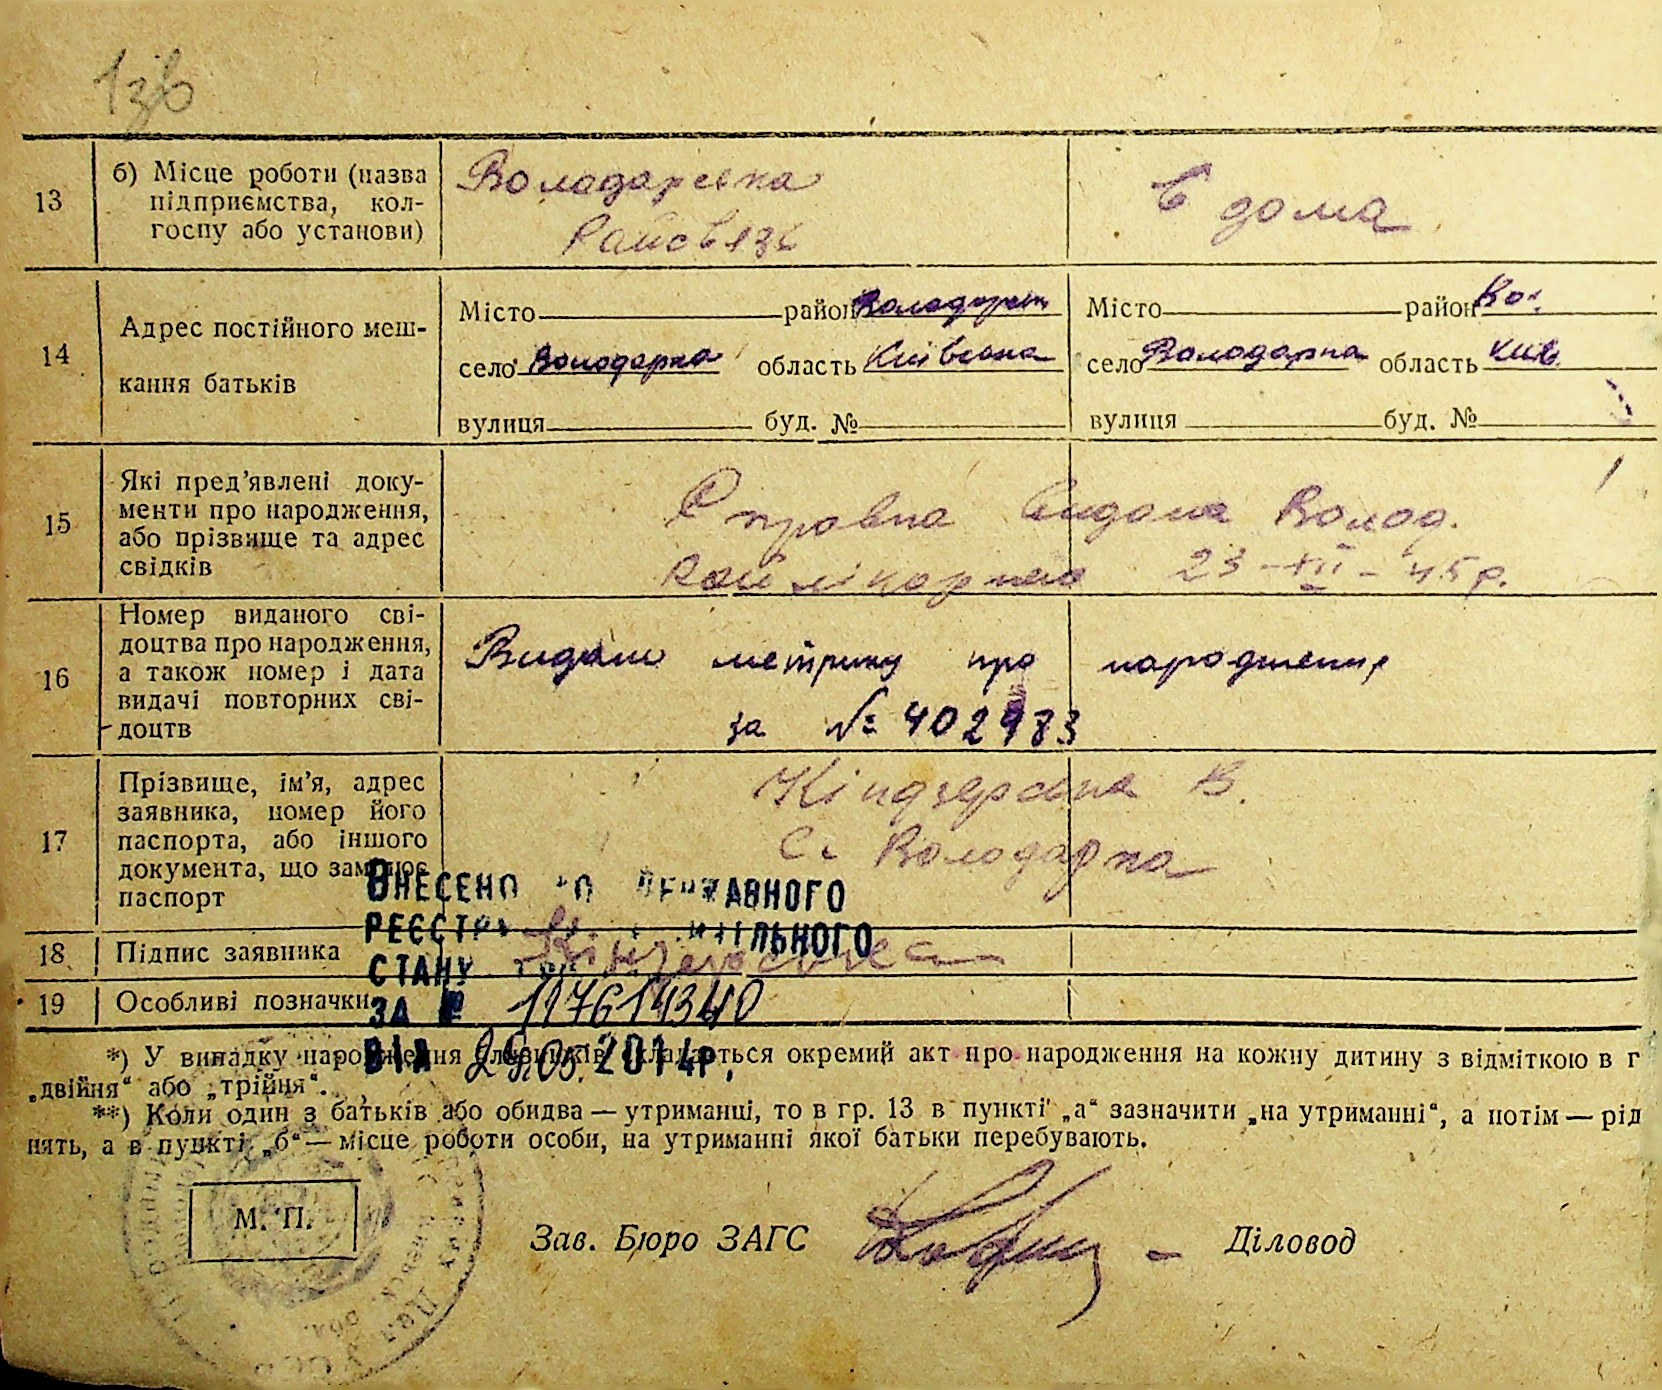 13
б) Місце роботи (назва
підприємства, кол-
госпу або установи)
Володарська
Райсвязь
в дома
14
Адрес постійного меш-
кання батьків
Місто район Володарськ
село Володарка область Київська
вулиця буд. №
Місто район Вол.
село Володарка область Київ.
вулиця буд. №
15
Які пред'явлені доку-
менти про народження,
або прізвище та адрес
свідків
Справка видана Волод.
Райлікарнею 23-XII-45 р.
16
Номер виданого сві-
доцтва про народження,
а також номер і дата
видачі повторних сві-
доцтв
Видано метрику про народження
за № 402983
17
Прізвище, ім'я, адрес
заявника, номер його
паспорта, або іншого
документа, що замінює
паспорт
Кіндзерська В.
С. Володарка
18 Підпис заявника
19 Особливі позначки
ВНЕСЕНО ДО ДЕРЖАВНОГО
РЕЄСТРУ ЦИВІЛЬНОГО
СТАНУ
ЗА № 117614340
ВІД 29.05.2014р.
*) У випадку народження близнюків складається окремий акт про народження на кожну дитину з відміткою в г
„двійня“ або „трійня“.
**) Коли один з батьків або обидва — утриманці, то в гр. 13 в пункті „а“ зазначити „на утриманні“, а потім — рід
нять, а в пункті „б“ — місце роботи особи, на утриманні якої батьки перебувають.
М. П.
Зав. Бюро ЗАГС
Діловод